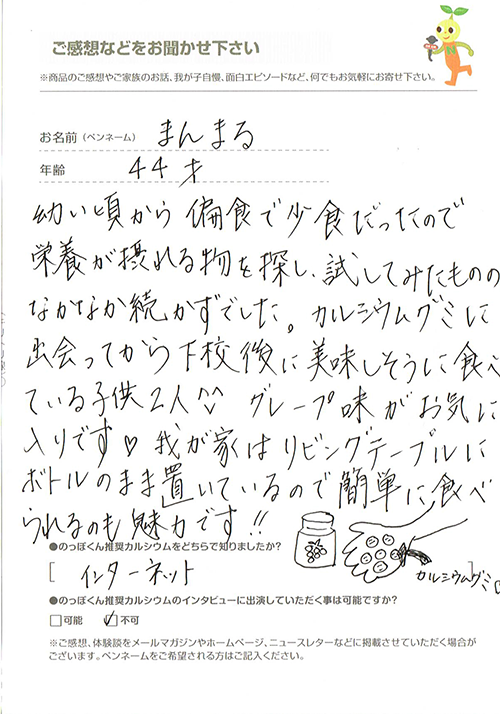 ご感想などをお聞かせ下さい
※商品のご感想やご家族のお話、我が子自慢、面白エピソードなど、何でもお気軽にお寄せ下さい。
お名前（ペンネーム） まんまる
年齢 44才
幼い頃から偏食で少食だったので
栄養が摂れる物を探し、試してみたものの
なかなか続かずでした。カルシウムグミに
出会ってから下校後に美味しそうに食べ
ている子供2人^^ グレープ味がお気に
入りです♥ 我が家はリビングテーブルに
ボトルのまま置いているので簡単に食べ
られるのも魅力です!!
●のっぽくん推奨カルシウムをどちらで知りましたか?
[ インターネット ]
カルシウムグミ
●のっぽくん推奨カルシウムのインタビューに出演していただく事は可能ですか?
□可能 ☑不可
※ご感想、体験談をメールマガジンやホームページ、ニュースレターなどに掲載させていただく場合が
ございます。ペンネームをご希望される方はご記入ください。